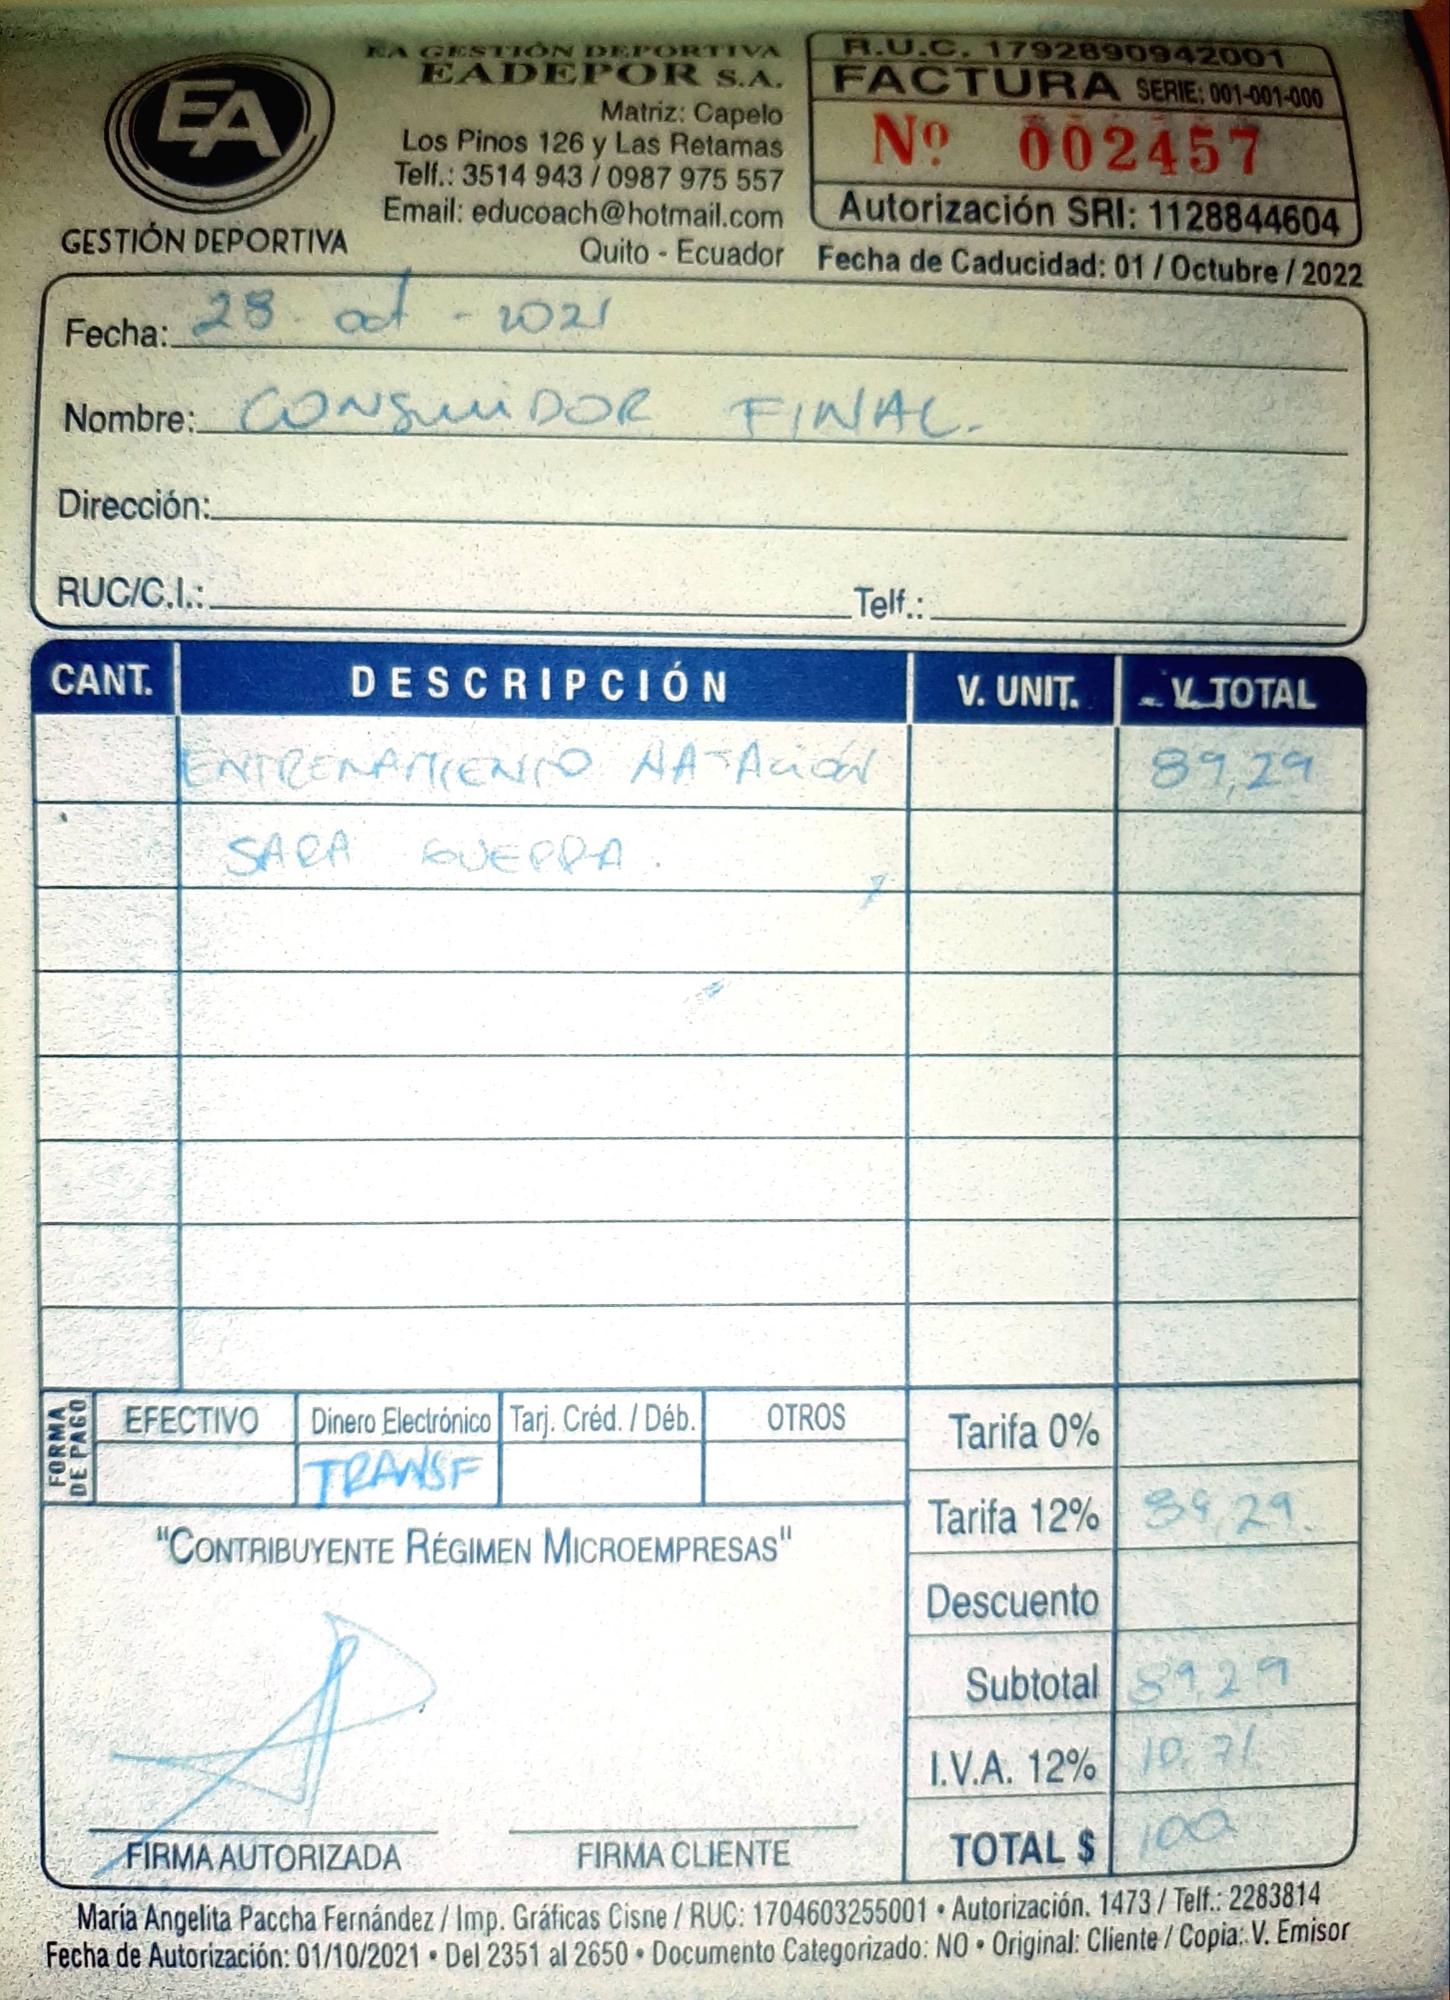 EA
GESTIÓN DEPORTIVA
EA GESTIÓN DEPORTIVA
EADEPOR S.A.
Matriz: Capelo
Los Pinos 126 y Las Retamas
Telf.: 3514 943 / 0987 975 557
Email: educoach@hotmail.com
Quito - Ecuador
R.U.C. 1792890942001
FACTURA SERIE: 001-001-000
Nº 002457
Autorización SRI: 1128844604
Fecha de Caducidad: 01 / Octubre / 2022
Fecha: 28 - oct - 2021
Nombre: CONSUMIDOR FINAL.
Dirección:
RUC/C.I.: Telf.:
CANT. DESCRIPCIÓN V. UNIT. V. TOTAL
ENTRENAMIENTO NATACIÓN 89,29
SARA GUERRA.
FORMA DE PAGO EFECTIVO Dinero Electrónico Tarj. Créd. / Déb. OTROS
TRANSF
Tarifa 0%
Tarifa 12% 89,29.
Descuento
Subtotal 89,29
I.V.A. 12% 10,71
TOTAL $ 100
"CONTRIBUYENTE RÉGIMEN MICROEMPRESAS"
FIRMA AUTORIZADA FIRMA CLIENTE
María Angelita Paccha Fernández / Imp. Gráficas Cisne / RUC: 1704603255001 • Autorización. 1473 / Telf.: 2283814
Fecha de Autorización: 01/10/2021 • Del 2351 al 2650 • Documento Categorizado: NO • Original: Cliente / Copia: V. Emisor